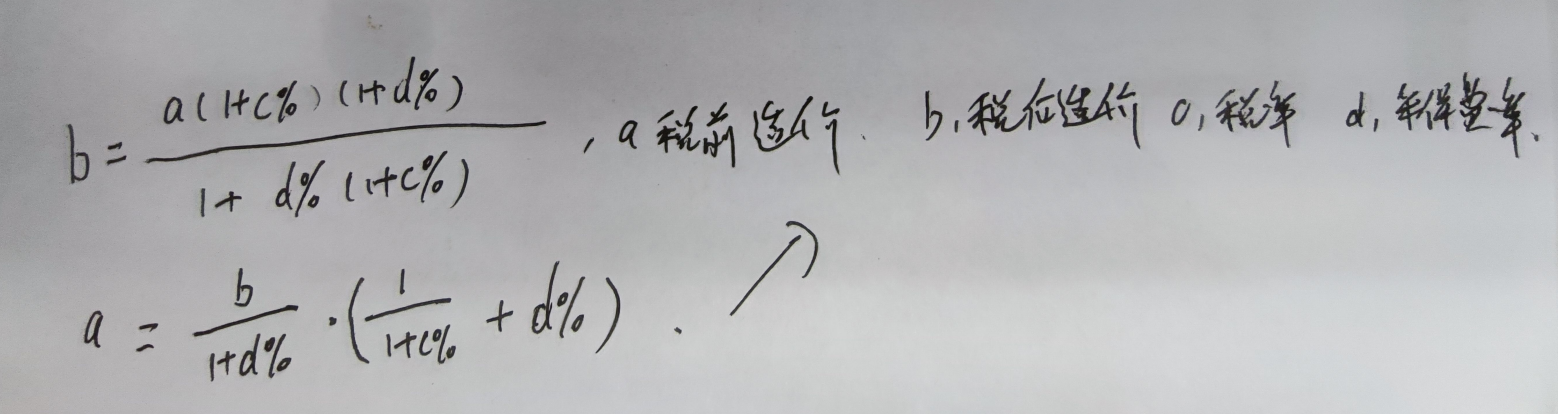 b = a(1+c%)(1+d%) / 1+ d%(1+c%) , a 税前造价. b, 税后造价 c, 税率 d, 年保养率.
a = b / 1+d% · (1 / 1+c% + d%) . ↗